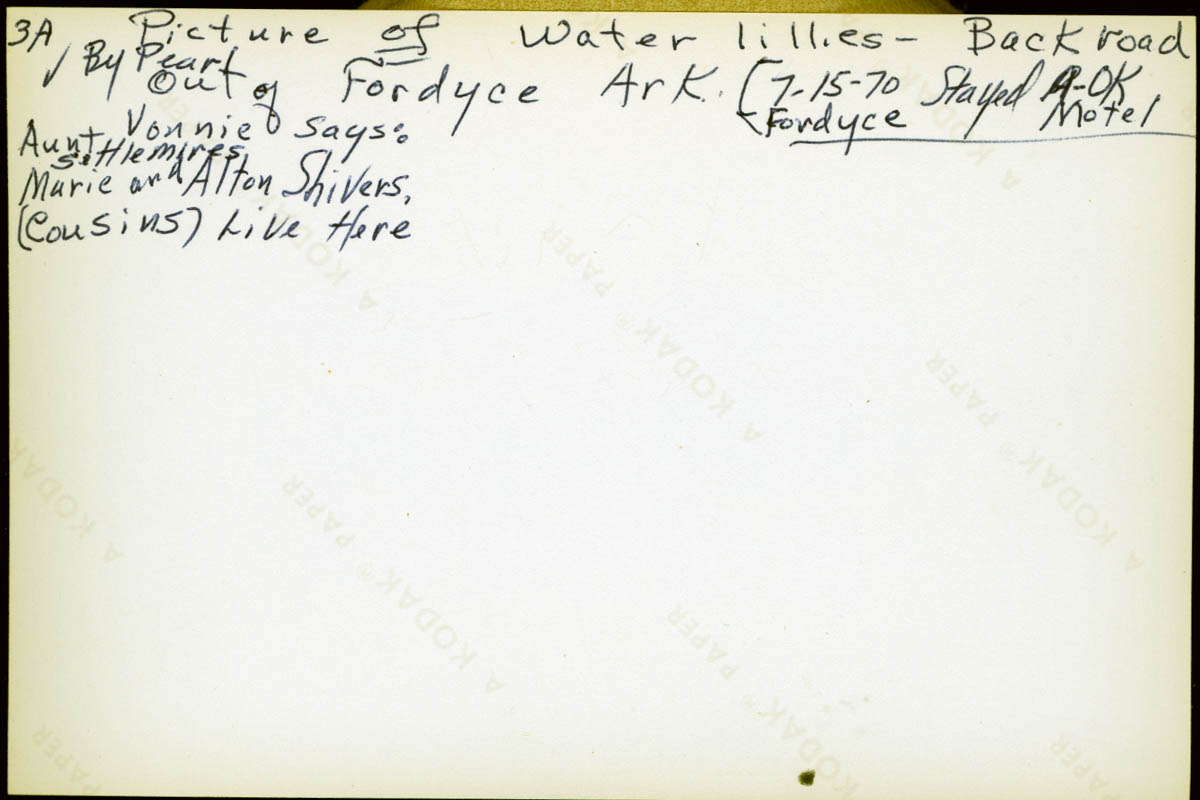 3A Picture of Water lillies - Back road
✓ By Pearl
Out of Fordyce Ark. (7-15-70 Stayed A-OK
Fordyce Motel
Aunt Vonnie says:
Settlemires
Marie and Alton Shivers,
(Cousins) Live Here
A KODAK® PAPER
A KODAK® PAPER
A KODAK® PAPER
A KODAK® PAPER
A KODAK® PAPER